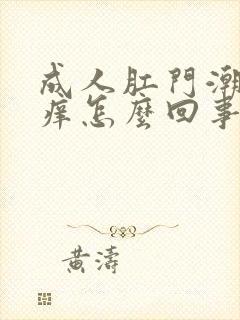 成人肛門潮
痒怎麼回事
黃濤